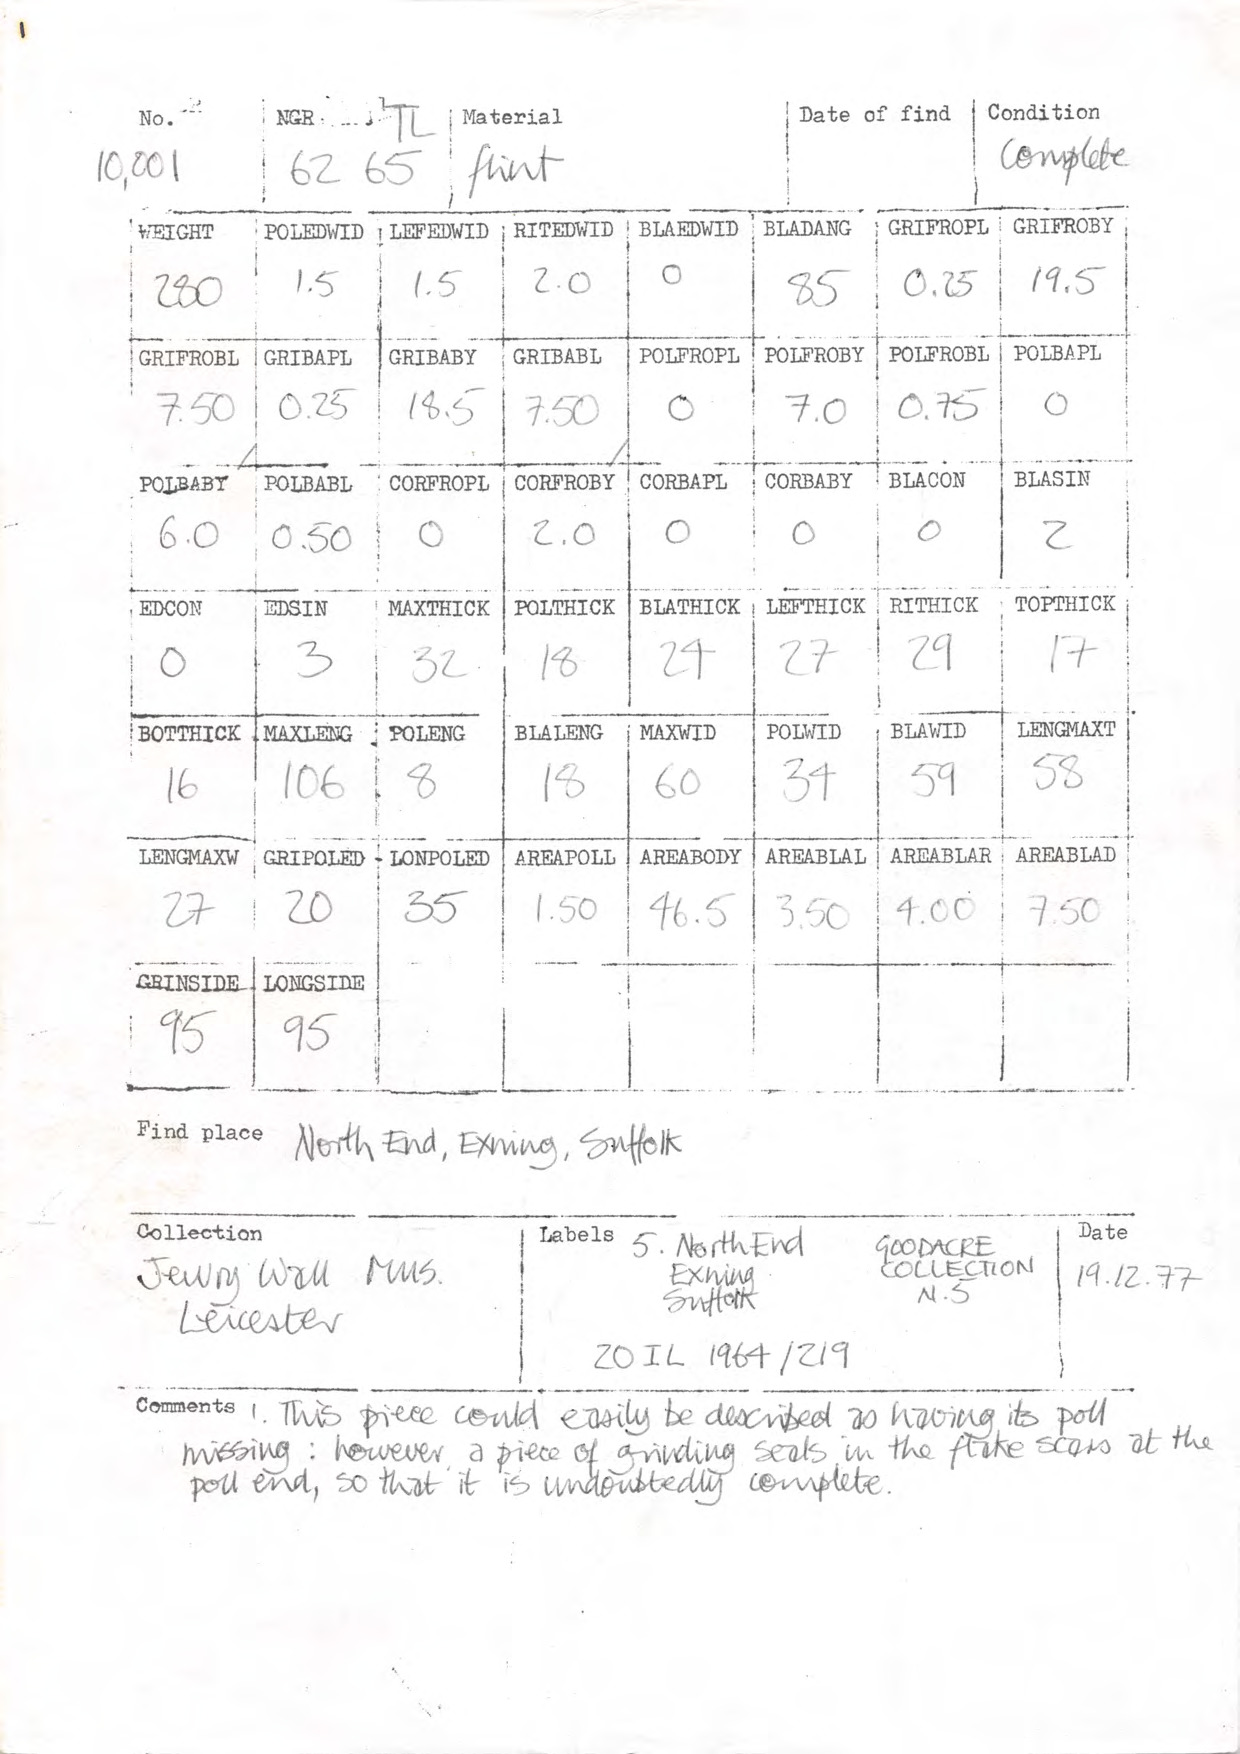 1
No. NGR TL Material Date of find Condition
10,001 62 65 flint Complete
WEIGHT POLEDWID LEFEDWID RITEDWID BLAEDWID BLADANG GRIFROPL GRIFROBY
280 1.5 1.5 2.0 0 85 0.25 19.5
GRIFROBL GRIBAPL GRIBABY GRIBABL POLFROPL POLFROBY POLFROBL POLBAPL
7.50 0.25 18.5 7.50 0 7.0 0.75 0
POLBABY POLBABL CORFROPL CORFROBY CORBAPL CORBABY BLACON BLASIN
6.0 0.50 0 2.0 0 0 0 2
EDCON EDSIN MAXTHICK POLTHICK BLATHICK LEFTHICK RITHICK TOPTHICK
0 3 32 18 24 27 29 17
BOTTHICK MAXLENG POLENG BLALENG MAXWID POLWID BLAWID LENGMAXT
16 106 8 18 60 34 59 58
LENGMAXW GRIPOLED LONPOLED AREAPOLL AREABODY AREABLAL AREABLAR AREABLAD
27 20 35 1.50 46.5 3.50 4.00 7.50
GRINSIDE LONGSIDE
95 95
Find place North End, Exning, Suffolk
Collection
Jewry Wall Mus.
Leicester
Labels 5. North End
Exning
Suffolk
GOODACRE
COLLECTION
N.5
20 IL 1964/219
Date
19.12.77
Comments 1. This piece could easily be described as having its poll
missing: however a piece of grinding seals in the flake scars at the
poll end, so that it is undoubtedly complete.